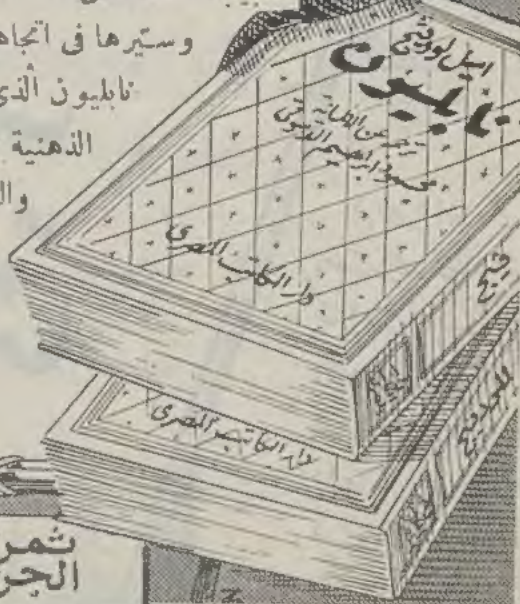 وستيرها فى اتجاه
نابليون الذى
الذهنية
وال
اميل لودفيج
نابليون
ترجمه من الالمانية
محمود ابراهيم الدسوقى
دار الكاتب المصرى
دار الكاتب المصرى
ثمر
الجز